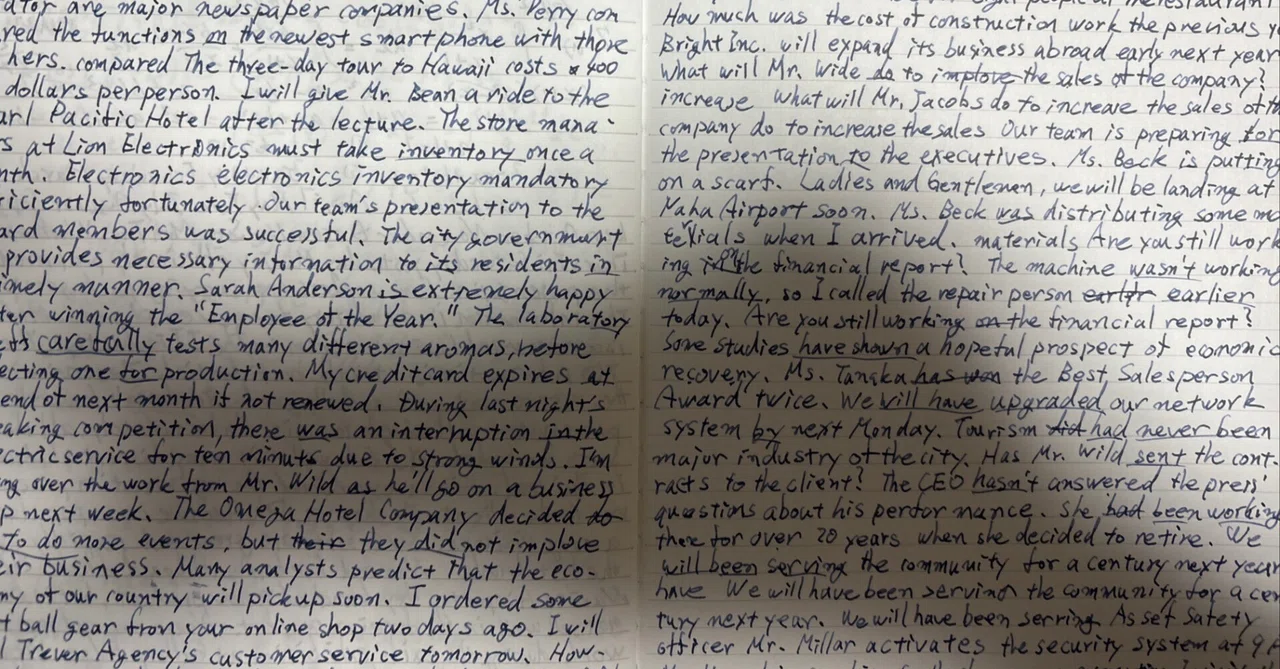 ator are major newspaper companies. Ms. Perry con
red the functions on the newest smartphone with those
hers. compared The three-day tour to Hawaii costs 400
dollars per person. I will give Mr. Bean a ride to the
arl Pacific Hotel after the lecture. The store mana-
s at Lion Electronics must take inventory once a
nth. Electronics electronics inventory mandatory
iciently fortunately. Our team's presentation to the
ard members was successful. The city government
provides necessary information to its residents in
imely manner. Sarah Anderson is extremely happy
ter winning the "Employee of the Year." The laboratory
carefully tests many different aromas, before
ecting one for production. My credit card expires at
end of next month if not renewed. During last night's
eaking competition, there was an interruption in the
ctric service for ten minuts due to strong winds. I'm
ng over the work from Mr. Wild as he'll go on a business
p next week. The Omega Hotel Company decided do
to do more events, but their they did not implove
eir business. Many analysts predict that the eco-
my of our country will pick up soon. I ordered some
t ball gear from your online shop two days ago. I will
l Trever Agency's customer service tomorrow. How-
How much was the cost of construction work the previous y
Bright Inc. will expand its business abroad early next year
What will Mr. Wide do to implove the sales of the company?
increase What will Mr. Jacobs do to increase the sales of th
company do to increase the sales Our team is preparing for
the presentation to the executives. Ms. Beck is putting
on a scarf. Ladies and Gentlemen, we will be landing at
Naha Airport soon. Ms. Beck was distributing some ma
terials when I arrived. materials Are you still work
ing on the financial report? The machine wasn't working
normally, so I called the repair person earlyr earlier
today. Are you still working on the financial report?
Some studies have shown a hopeful prospect of economic
recovery. Ms. Tanaka has won the Best Salesperson
Award twice. We will have upgraded our network
system by next Monday. Tourism did had never been
major industry of the city. Has Mr. Wild sent the cont-
racts to the client? The CEO hasn't answered the press'
questions about his performance. She had been working
there for over 20 years when she decided to retire. We
will been serving the community for a century next year
have We will have been serving the community for a cen
tury next year. We will have been serring Asset Safety
officer Mr. Millar activates the security system at 9